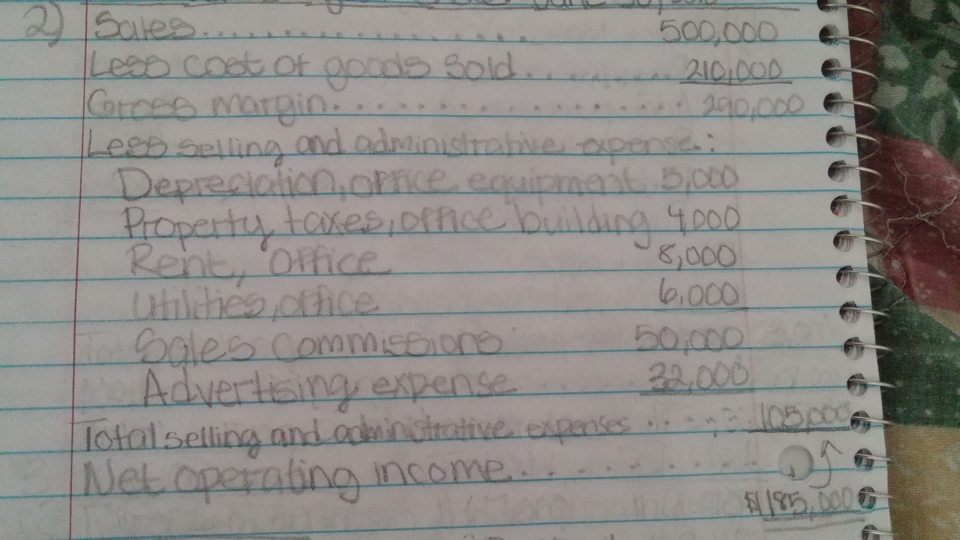 2) Sales.................... 500,000
Less cost of goods sold......... 210,000
Gross margin............... 290,000
Less selling and administrative expense:
Depreciation, office equipment 5,000
Property taxes, office building 4,000
Rent, office 8,000
Utilities, office 6,000
Sales commissions 50,000
Advertising expense 32,000
Total selling and administrative expenses...... 105,000
Net operating income..........
$185,000